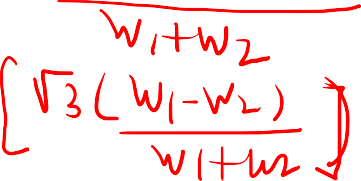 W1+W2
[√3(W1-W2)
W1+W2]